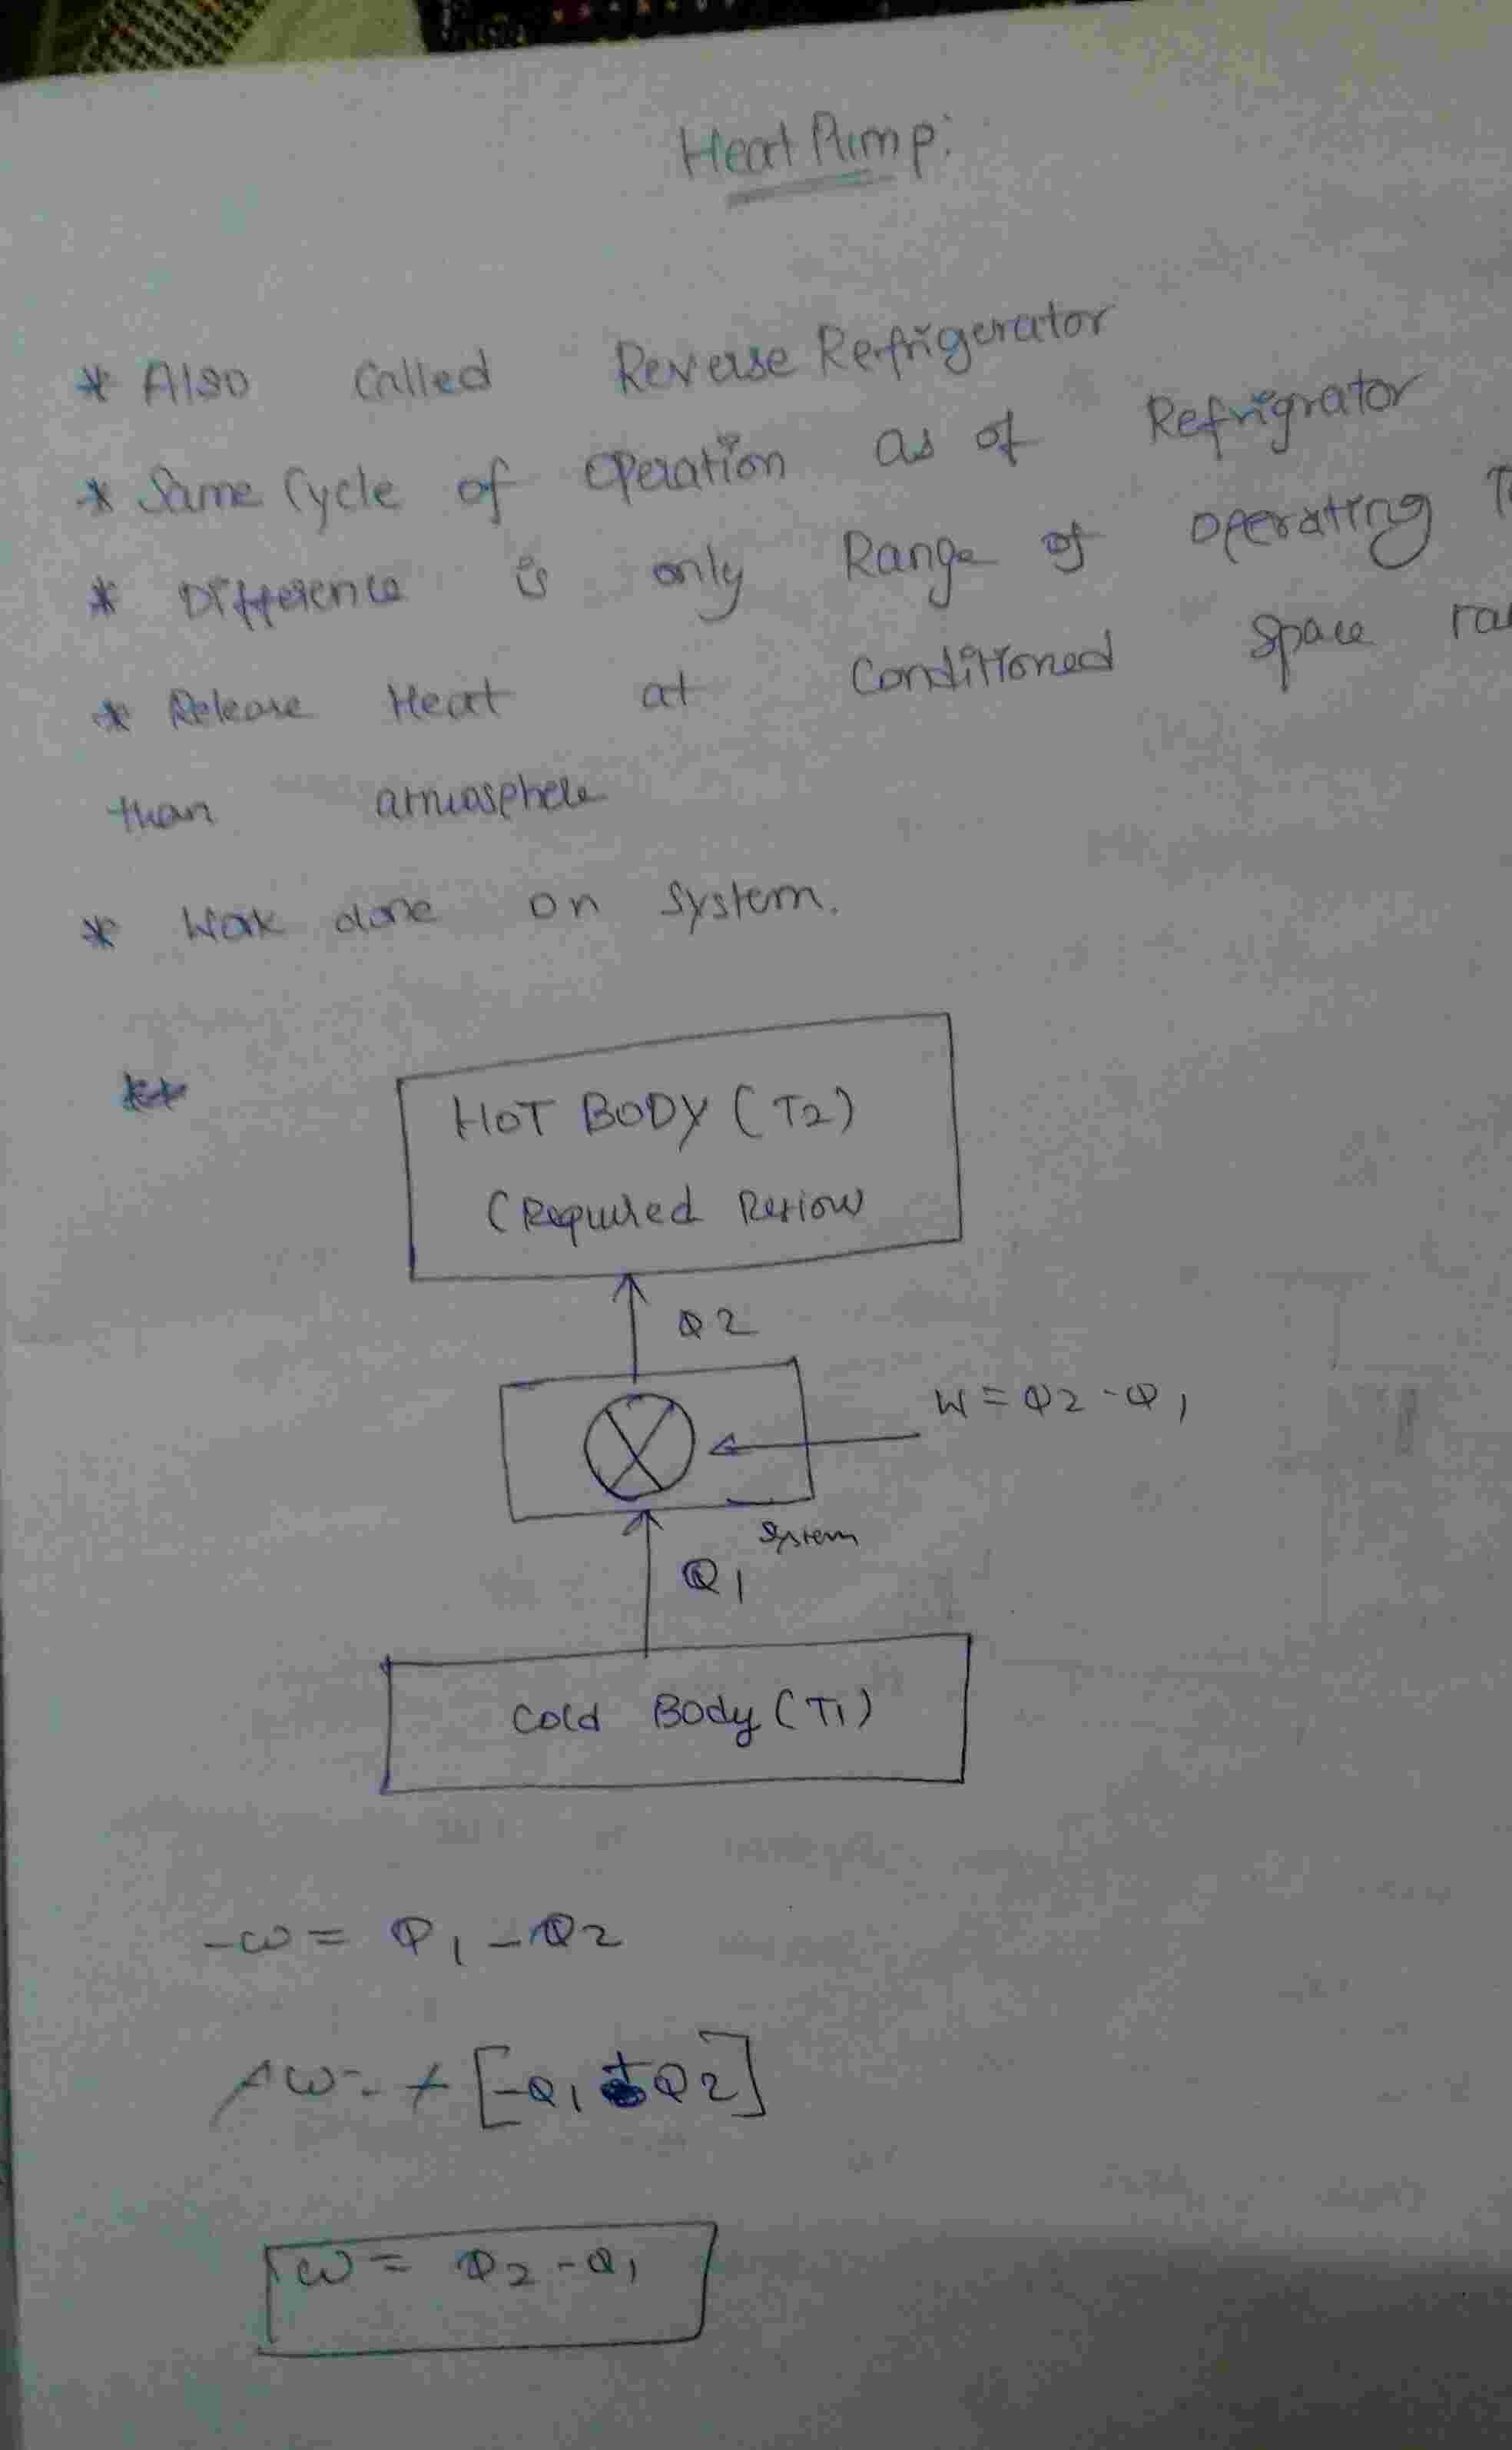 Heat Pump:
* Also Called Reverse Refrigerator
* Same Cycle of Operation as of Refrigrator
* Difference is only Range of operating
* Release Heat at Conditioned Space
than atmosphere
* Work done on System.
**
HOT BODY (T2)
(Required
Q2
W = Q2 - Q1
System
Q1
Cold Body (T1)
-W = Q1 - Q2
+W = + [-Q1 + Q2]
W = Q2 - Q1